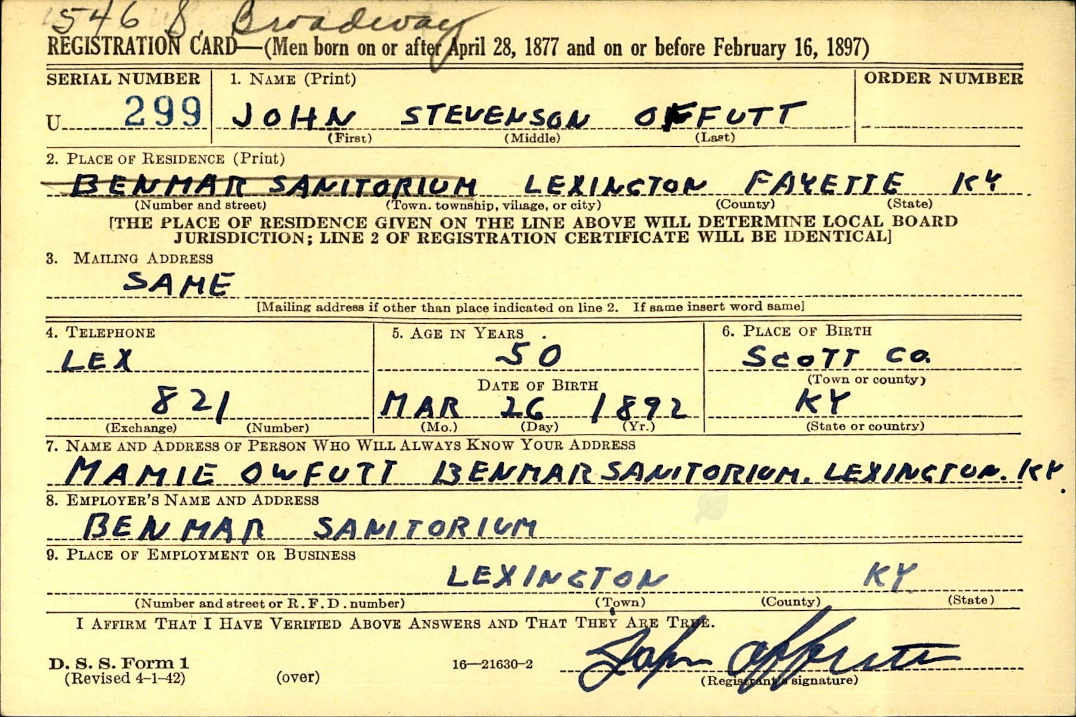 546 S. Broadway
REGISTRATION CARD—(Men born on or after April 28, 1877 and on or before February 16, 1897)
SERIAL NUMBER 1. NAME (Print) ORDER NUMBER
U 299 JOHN STEVENSON OFFUTT
(First) (Middle) (Last)
2. PLACE OF RESIDENCE (Print)
BENMAR SANITORIUM LEXINGTON FAYETTE KY
(Number and street) (Town, township, village, or city) (County) (State)
[THE PLACE OF RESIDENCE GIVEN ON THE LINE ABOVE WILL DETERMINE LOCAL BOARD
JURISDICTION; LINE 2 OF REGISTRATION CERTIFICATE WILL BE IDENTICAL]
3. MAILING ADDRESS
SAME
[Mailing address if other than place indicated on line 2. If same insert word same]
4. TELEPHONE 5. AGE IN YEARS 6. PLACE OF BIRTH
LEX 50 SCOTT CO.
DATE OF BIRTH (Town or county)
821 MAR 26 1892 KY
(Exchange) (Number) (Mo.) (Day) (Yr.) (State or country)
7. NAME AND ADDRESS OF PERSON WHO WILL ALWAYS KNOW YOUR ADDRESS
MAMIE OWFUTT BENMAR SANITORIUM. LEXINGTON. KY.
8. EMPLOYER'S NAME AND ADDRESS
BENMAR SANITORIUM
9. PLACE OF EMPLOYMENT OR BUSINESS
LEXINGTON KY
(Number and street or R. F. D. number) (Town) (County) (State)
I AFFIRM THAT I HAVE VERIFIED ABOVE ANSWERS AND THAT THEY ARE TRUE.
John Offutt
D. S. S. Form 1
(Revised 4-1-42) (over) 16—21630-2 (Registrant's signature)